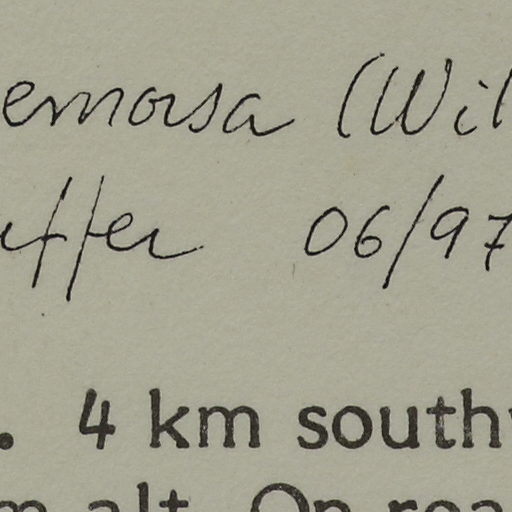 emorsa (Wil
uffer 06/97
. 4 km south
m alt. On roa